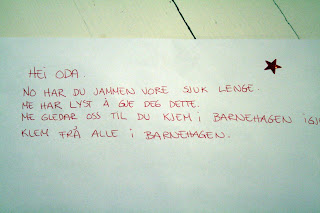 HEI ODA.
NO HAR DU JAMMEN VORE SJUK LENGE.
ME HAR LYST Å GJE DEG DETTE.
ME GLEDAR OSS TIL DU KJEM I BARNEHAGEN
KLEM FRÅ ALLE I BARNEHAGEN.